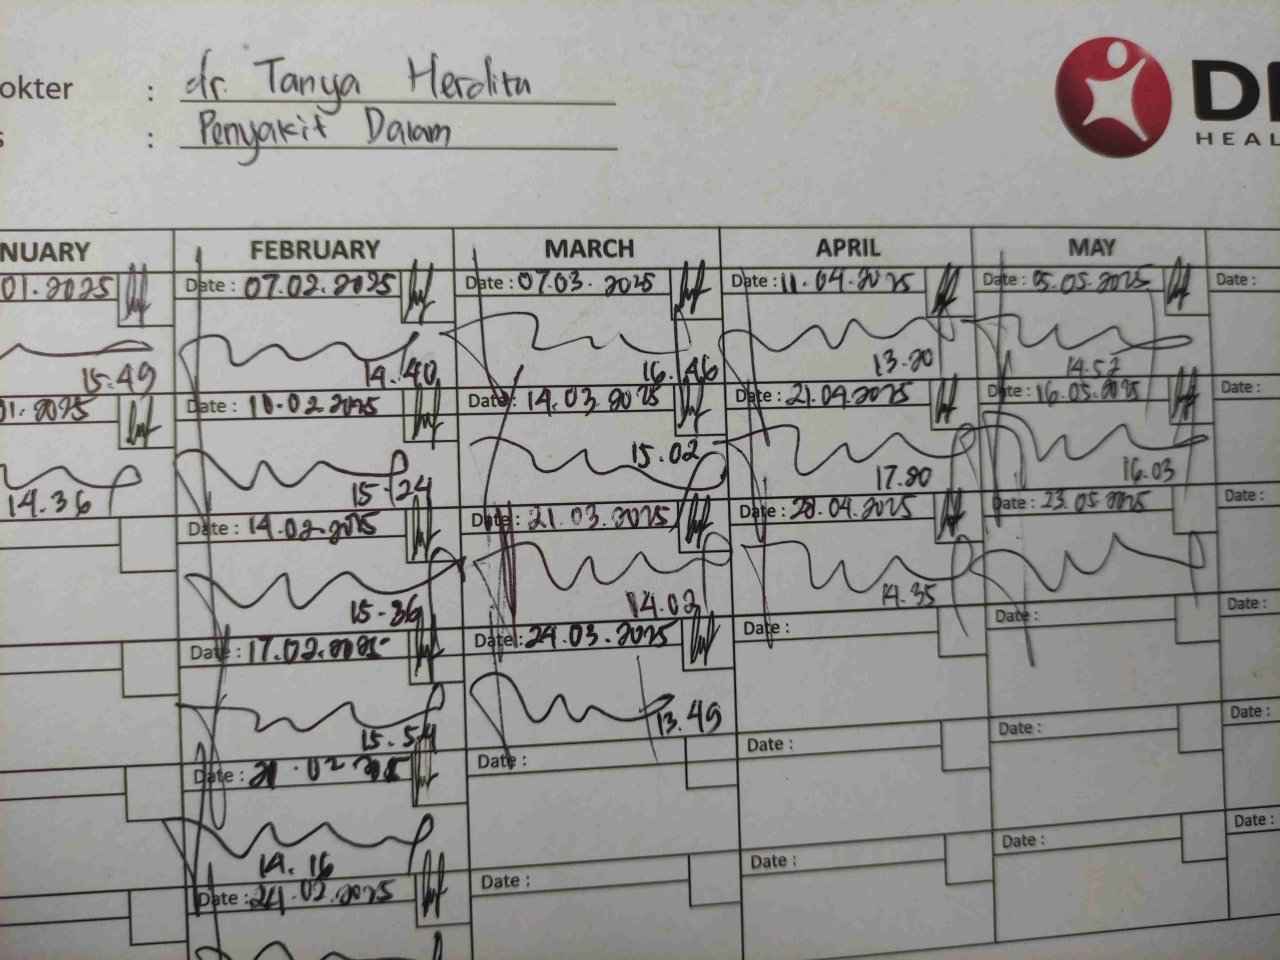 okter : dr. Tanya Herdita
s : Penyakit Dalam
HEAL
NUARY FEBRUARY MARCH APRIL MAY
01.2025 Date : 07.02.2025 Date : 07.03.2025 Date : 11.04.2025 Date : 05.05.2025 Date :
15.49 14.40 16.46 13.20 14.52
01.2025 Date : 10.02.2025 Date : 14.03.2025 Date : 21.04.2025 Date : 16.05.2025 Date :
14.36 15-24 15.02 17.20 16.03
Date : 14.02.2025 Date : 21.03.2025 Date : 28.04.2025 Date : 23.05.2025 Date :
15-36 14.02 14.35
Date : 17.02.2025 Date : 24.03.2025 Date : Date : Date :
15.54 13.49
Date : 21.02.2025 Date : Date : Date : Date :
14.16
Date : 24.02.2025 Date : Date : Date : Date :